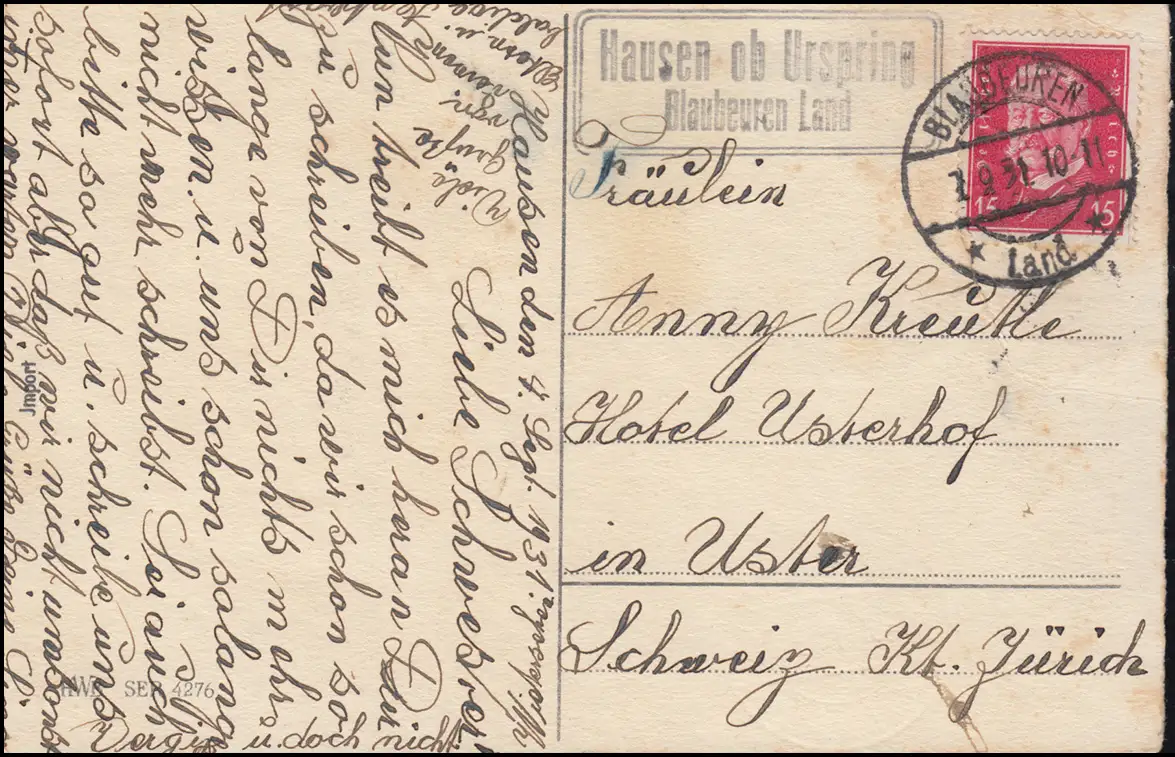 Hausen ob Urspring
Blaubeuren Land
BLAUBEUREN
7.9.31. 10-11
* Land *
15 15
Fräulein
Anny Kreutle
Hotel Usterhof
in Uster
Schweiz Kt. Zürich
Hausen den 4. Sept. 1931.
Liebe Schwester!
Nun treibt es mich heran Dir
zu schreiben, da wir schon so
lange von Dir nichts mehr
wissen. u. uns schon so lange
nicht mehr schreibst. Sei auch
bitte so gut u. schreibe uns
sofort aber daß wir nicht umsonst
Viele
Grüße
von
u. doch nicht
Import
HWB SER 4276